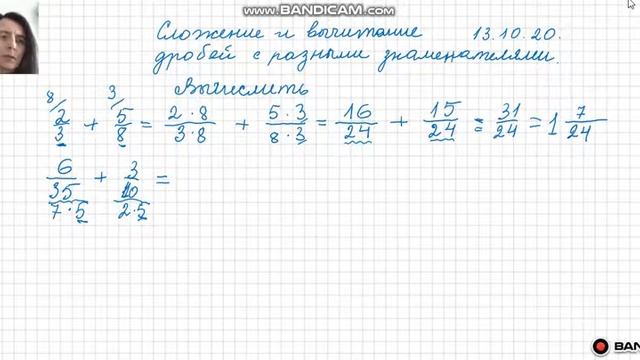 WWW.BANDICAM.COM
Сложение и вычитание 13.10.20.
дробей с разными знаменателями.
Вычислить
8/ 2/3 + 3/ 5/8 = 2·8/3·8 + 5·3/8·3 = 16/24 + 15/24 = 31/24 = 1 7/24
6/35 + 3/10 =
7·5 2·5
BAN